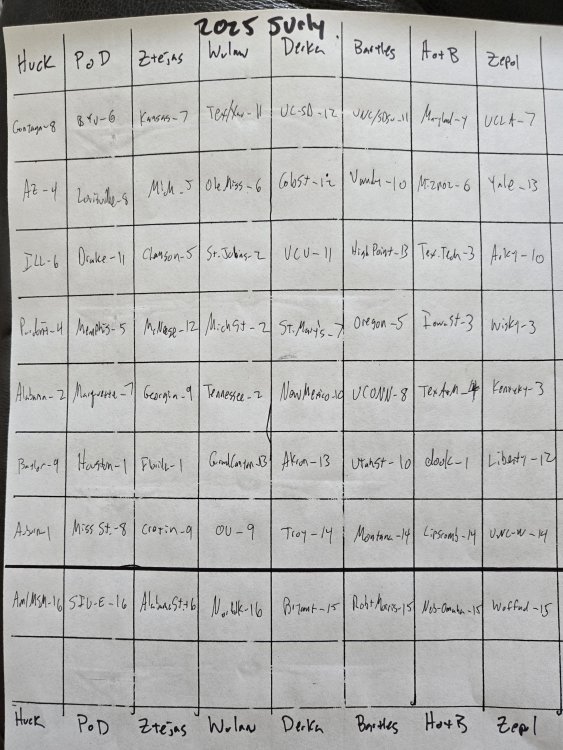 2025 Surly.
Huck PoD Ztejas Wulaw Derka Bartles HotB Zepol
Gonzaga-8 BYU-6 Kansas-7 Tex/Xav-11 UC-SD-12 UNC/SDSU-11 Maryland-4 UCLA-7
AZ-4 Louisville-8 Mich-5 Ole Miss-6 ColoSt-12 Vandy-10 Mizzou-6 Yale-13
ILL-6 Drake-11 Clemson-5 St. Johns-2 VCU-11 High Point-13 Tex.Tech-3 Arky-10
Purdue-4 Memphis-5 McNeese-12 MichSt-2 St.Mary's-7 Oregon-5 Iowa St-3 Wisky-3
Alabama-2 Marquette-7 Georgia-9 Tennessee-2 New Mexico-10 UCONN-8 TexA+M-4 Kentucky-3
Baylor-9 Houston-1 Florida-1 Grand Canyon-13 Akron-13 UtahSt-10 dook-1 Liberty-12
Auburn 1 Miss St.-8 Creighton-9 OU-9 Troy-14 Montana-14 Lipscomb-14 UNC-W-14
Am/MSM-16 SIU-E-16 Alabama St-16 Norfolk-16 Bryant-15 Robt Morris-15 Neb-Omaha-15 Wofford-15
Huck PoD Ztejas Wulaw Derka Bartles HotB Zepol